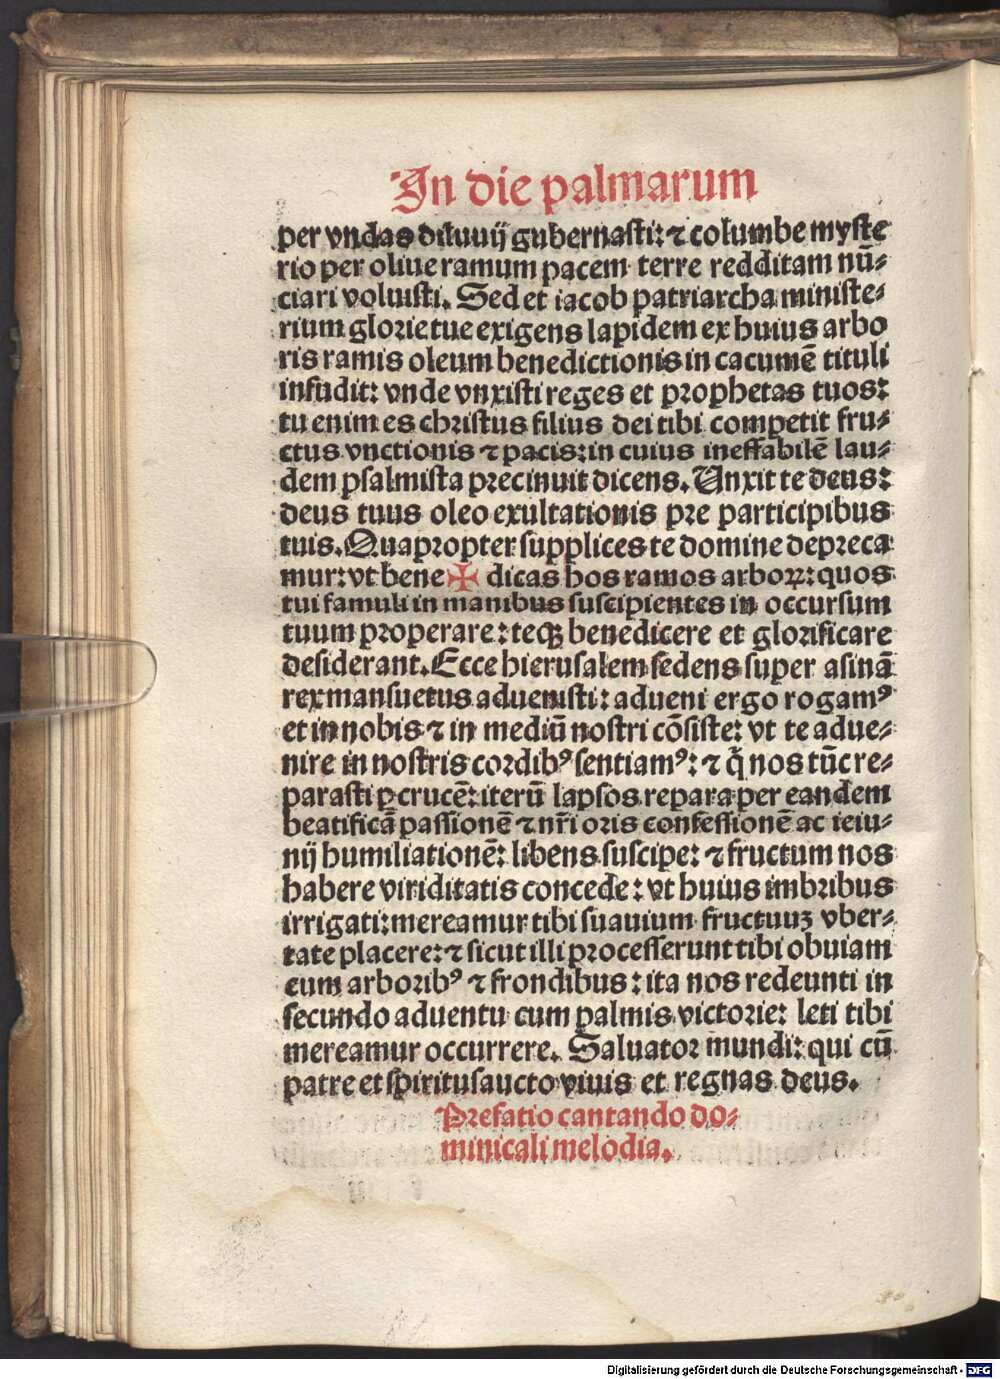 In die palmarum
per vndas diluuij gubernasti: ⁊ columbe myste
rio per oliue ramum pacem terre redditam nū⸗
ciari voluisti. Sed et iacob patriarcha ministe⸗
rium glorie tue exigens lapidem ex huius arbo
ris ramis oleum benedictionis in cacumē tituli
infudit: vnde vnxisti reges et prophetas tuos:
tu enim es christus filius dei tibi competit fru⸗
ctus vnctionis ⁊ pacis: in cuius ineffabilē lau⸗
dem psalmista precinuit dicens. Unxit te deus:
deus tuus oleo exultationis pre participibus
tuis. Quapropter supplices te domine depreca
mur: vt bene ✠ dicas hos ramos arboꝝ: quos
tui famuli in manibus suscipientes in occursum
tuum properare: teqꝫ benedicere et glorificare
desiderant. Ecce hierusalem sedens super asinā
rex mansuetus aduenisti: adueni ergo rogamꝰ
et in nobis ⁊ in mediū nostri cōsiste: vt te adue⸗
nire in nostris cordibꝰ sentiamꝰ: ⁊ q̄ nos tūc re⸗
parasti ꝑ crucē: iterū lapsos repara per eandem
beatificā passionē ⁊ nr̄i oris confessionē ac ieiu⸗
nij humiliationē: libens suscipe: ⁊ fructum nos
habere viriditatis concede: vt huius imbribus
irrigati: mereamur tibi suauium fructuuꝫ vber⸗
tate placere: ⁊ sicut illi processerunt tibi obuiam
cum arboribꝰ ⁊ frondibus: ita nos redeunti in
secundo aduentu cum palmis victorie: leti tibi
mereamur occurrere. Saluator mundi: qui cū
patre et spiritusancto viuis et regnas deus.
Prefatio cantando do⸗
minicali melodia.
Digitalisierung gefördert durch die Deutsche Forschungsgemeinschaft - DFG